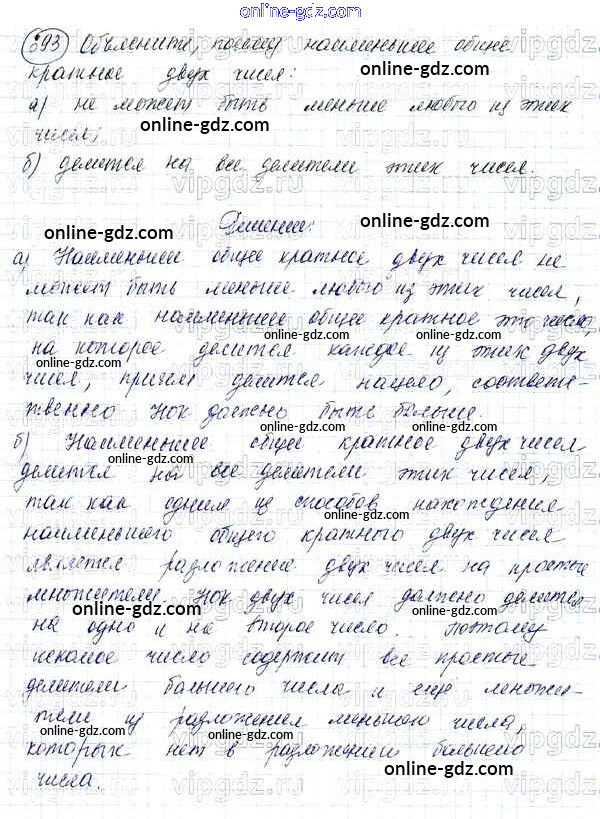 online-gdz.com
893 Объясните, почему наименьшее общее
кратное двух чисел:
online-gdz.com
а) не может быть меньше любого из этих
чисел;
online-gdz.com
б) делится на все делители этих чисел.
Решение:
online-gdz.com
online-gdz.com
а) Наименьшее общее кратное двух чисел не
может быть меньше любого из этих чисел,
online-gdz.com
так как наименьшее общее кратное это число,
на которое делится каждое из этих двух
online-gdz.com
чисел, причем делится нацело, соответс-
твенно НОК должно быть больше.
online-gdz.com
б) Наименьшее общее кратное двух чисел
делится на все делители этих чисел,
online-gdz.com
так как одним из способов нахождения
online-gdz.com
наименьшего общего кратного двух чисел
является разложение двух чисел на простые
online-gdz.com
множители. НОК двух чисел должно делится
online-gdz.com
на одно и на второе число. Поэтому
искомое число содержит все простые
online-gdz.com
делители большего числа и ещё множи-
тели из разложения меньшего числа,
online-gdz.com
которых нет в разложении большего
числа.
online-gdz.com